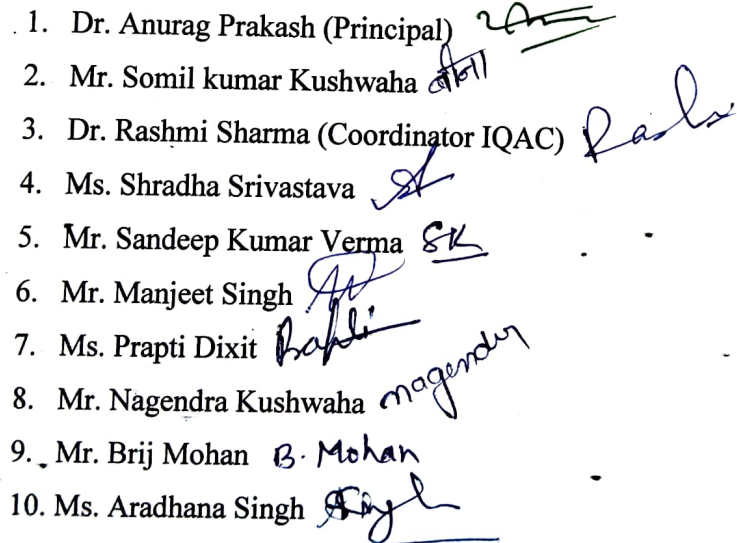 1. Dr. Anurag Prakash (Principal)
2. Mr. Somil kumar Kushwaha
3. Dr. Rashmi Sharma (Coordinator IQAC)
4. Ms. Shradha Srivastava
5. Mr. Sandeep Kumar Verma SK
6. Mr. Manjeet Singh
7. Ms. Prapti Dixit
8. Mr. Nagendra Kushwaha
9. Mr. Brij Mohan B. Mohan
10. Ms. Aradhana Singh